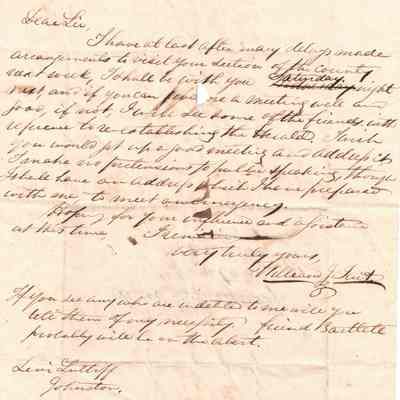 Dear Sir,
I have at last after many delays made
arrangements to visit your section of the county
next week, I shall be with you Saturday night
next and if you can give me a meeting well and
good, if not, I will see some of the friends with
reference to re-establishing the Herald. I wish
you would get up a good meeting and address it
I make no pretensions to public speaking, though
I shall have an address which I have prepared
with me, to meet an emergency.
for your influence and assistance
at this time, I remain
very truly yours,
William J.
If you see any who are indebted to me will you
tell them of my necessity. friend Bartlett
probably will be on the alert.
Levi
Johnston.